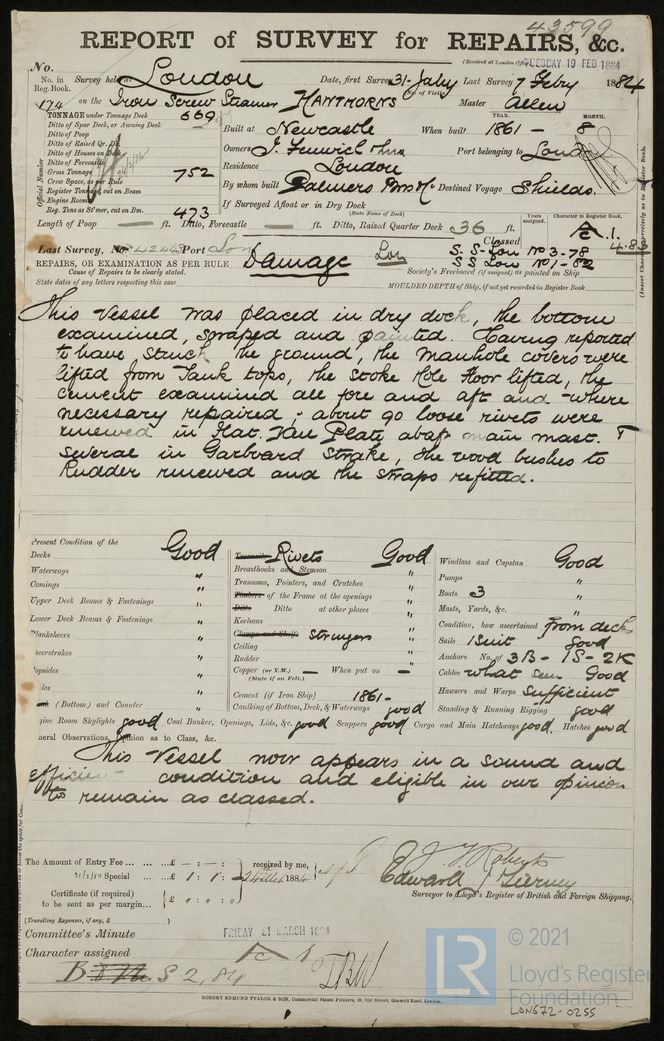 43599
REPORT of SURVEY for REPAIRS, &c.
(Received at London Office TUESDAY 19 FEB 1884
No.
No. in Reg. Book. Survey held at London Date, first Survey 31-Jaby Last Survey 7 Febry 1884
174 on the Iron Screw Steamer HAWTHORNS Master Allen
TONNAGE under Tonnage Deck 669
Ditto of Spar Deck, or Awning Deck
Ditto of Poop
Ditto of Raised Qr. Dk.
Ditto of Houses on Deck
Ditto of Forecastle
Gross Tonnage 752
Crew Space, as per Rule
Register Tonnage, cut on Beam
Engine Room
Reg. Tons as St'mer, cut on Bm. 473
Official Number
YEAR. MONTH.
Built at Newcastle When built 1861 - 8
Owners J. Fenwick & Son Port belonging to London
Residence London
By whom built Palmers Bros & Co Destined Voyage Shields.
If Surveyed Afloat or in Dry Dock
(State Name of Dock)
Length of Poop — ft. Ditto, Forecastle — ft. Ditto, Raised Quarter Deck 36 ft.
Years assigned. Character in Register Book.
A.1.
4.83
Last Survey, No 42448 Port Lon
Classed
S.S. Lon No 3-78
S.S. Lon No 1-82
REPAIRS, OR EXAMINATION AS PER RULE Damage Lon
Cause of Repairs to be clearly stated.
State dates of any letters respecting this case
Society's Freeboard (if assigned) as painted on Ship
MOULDED DEPTH of Ship, if not yet recorded in Register Book
This Vessel was placed in dry dock, the bottom
examined, scraped and painted. Having reported
to have struck the ground, the manhole covers were
lifted from Tank tops, the Stoke Hole Floor lifted, the
cement examined all fore and aft and where
necessary repaired; about 90 loose rivets were
renewed in Flat Keel Plate abaft main mast. &
several in Garboard Strake, the wood bushes to
Rudder renewed and the straps refitted.
Present Condition of the
Decks Good
Waterways "
Comings "
Upper Deck Beams & Fastenings "
Lower Deck Beams & Fastenings "
Planksheers "
Sheerstrakes "
Topsides "
(Bottom) and Counter "
Rivets Good
Breasthooks and Stemson "
Transoms, Pointers, and Crutches "
Timbers of the Frame at the openings "
Ditto Ditto at other places "
Keelsons "
Clamps and Shelfs Stringers "
Ceiling "
Rudder "
Copper (or Y.M.) — When put on —
(State if on Felt.)
Cement (if Iron Ship) 1861-
Caulking of Bottom, Deck, & Waterways good
Windlass and Capstan Good
Pumps "
Boats 3 "
Masts, Yards, &c. "
Condition, how ascertained from deck
Sails 1 Suit Good
Anchors No. of 3B - 1S - 2K
Cables what seen Good
Hawsers and Warps Sufficient
Standing & Running Rigging good
Engine Room Skylights good Coal Bunker, Openings, Lids, &c. good Scuppers good Cargo and Main Hatchways good. Hatches good
General Observations, Opinion as to Class, &c.
This Vessel now appears in a sound and
efficient condition and eligible in our opinion
to remain as classed.
The Amount of Entry Fee ... ... ...£ - : - :
Special ... ...£ 1 : 1 : -
received by me,
1884
Certificate (if required)
to be sent as per margin... £ " : " : "
(Travelling Expenses, if any, £ )
J. V. Roberts
Edward J Tierney
Surveyor to Lloyd's Register of British and Foreign Shipping.
Committee's Minute FRIDAY 21 MARCH 1884
Character assigned
B S 2, 84
ROBERT EDMUND TAYLOR & SON, Commercial Steam Printers, 19, Old Street, Goswell Road, London.
LR
© 2021
Lloyd's Register
Foundation
LON672-0255